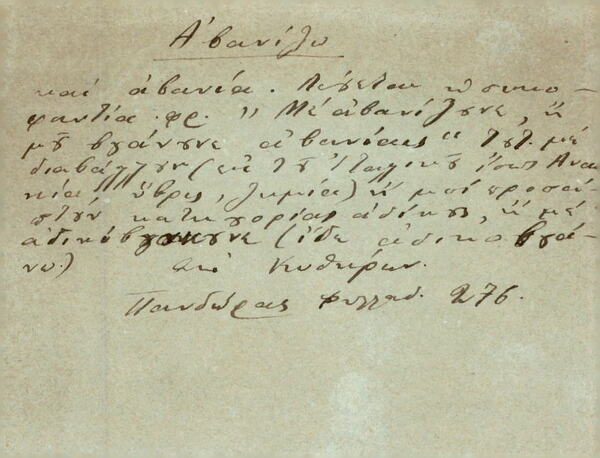 Ἀβανίζω
καὶ ἀβανία. Λέγεται ἡ συκο-
φαντία. φρ. " Μὲ ἀβανίζουνε, ἢ
μοῦ βγάνουνε ἀβανίαις" τουτ. μὲ
διαβάλλουν (ἐκ τοῦ Ἰταλικοῦ ἴσως Avania
ὕβρις, ζημία) ἢ μοὶ προσά-
πτουν κατηγορίας ἀδίκους, ἢ μὲ
ἀδικοβγάνουνε (ἴδε ἀδικοβγά-
νω.) ἐκ Κυθήρων.
Πανδώρας φυλλάδ. 276.